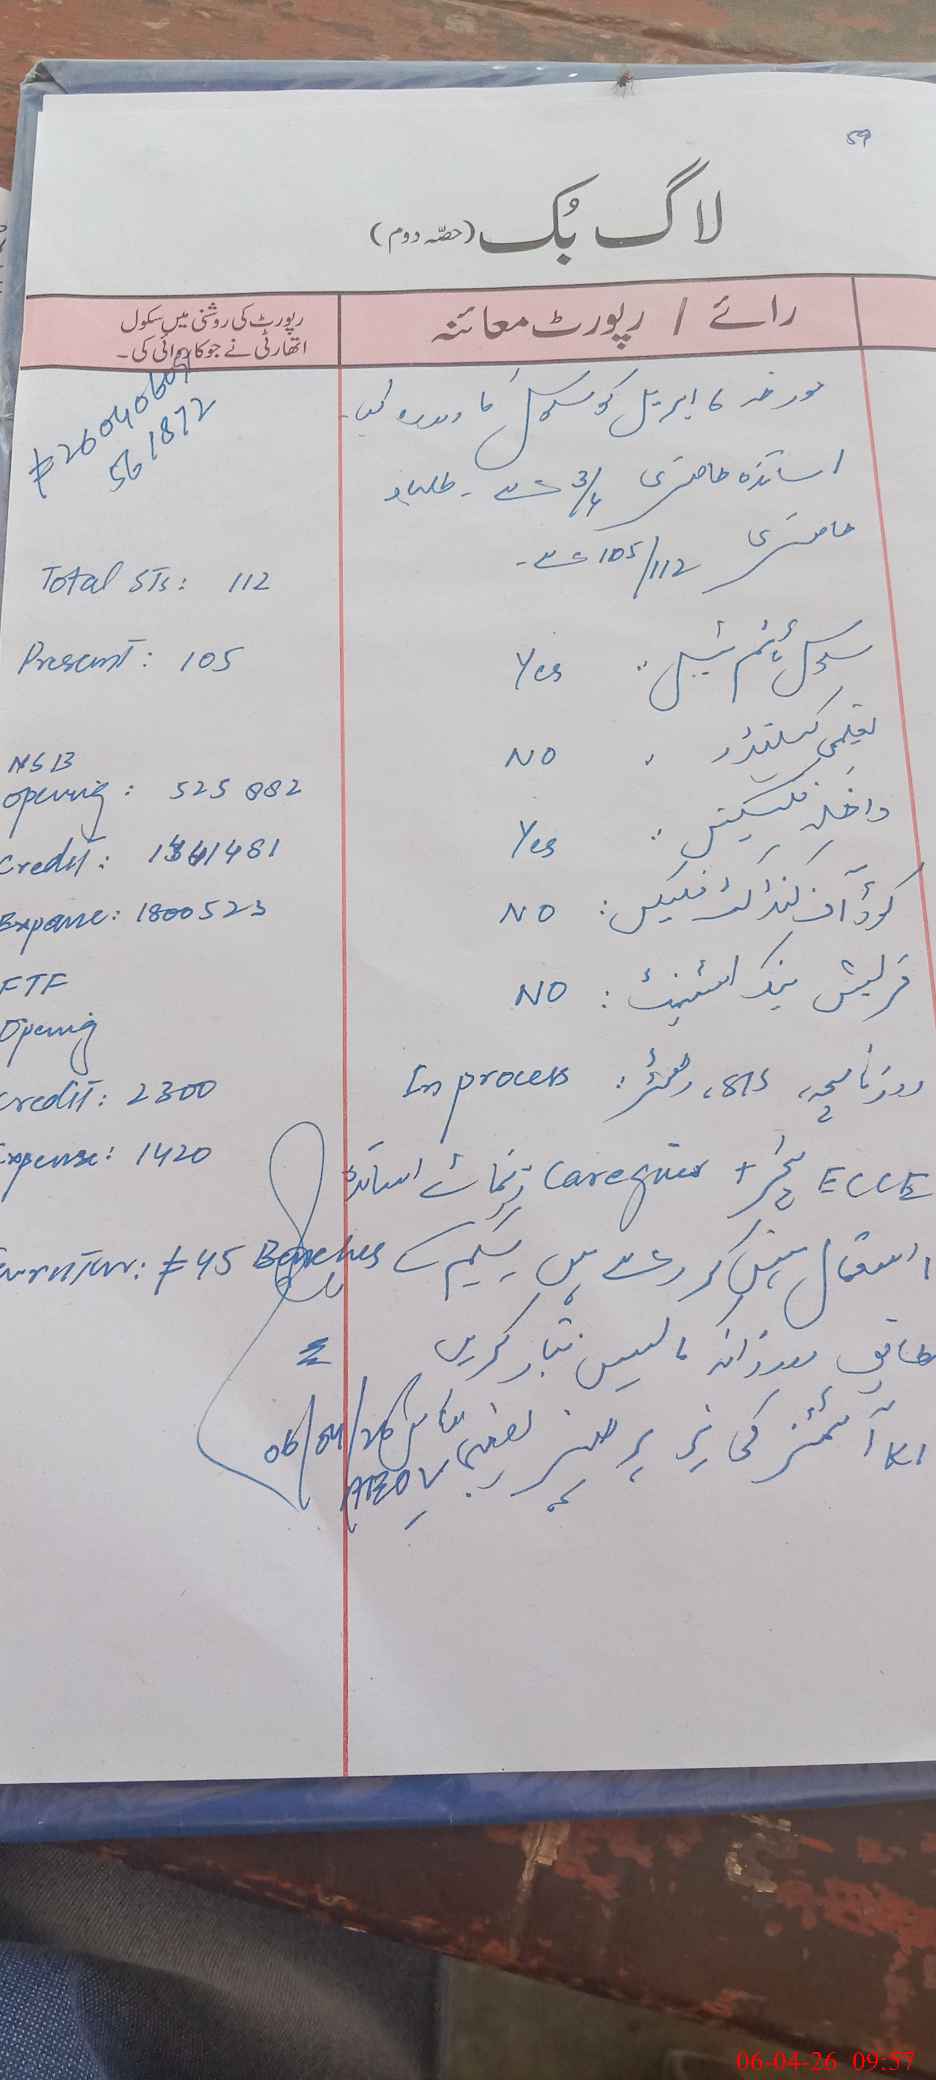 59
لاگ بُک (حصّہ دوم)
رائے / رپورٹ معائنہ
رپورٹ کی روشنی میں سکول
اتھارٹی نے جو کاروائی کی۔
مورخہ 6 اپریل کو سکول کا دورہ کیا۔
اساتذہ حاضری 3/4 ہے۔ طلباء
حاضری 105/112 ہے۔
سکول ٹائم ٹیبل: Yes
تعلیمی کیلنڈر: NO
داخلہ فلیکس: Yes
کوڈ آف کنڈکٹ فلیکس: NO
NO
روزنامچہ، SIS، رجسٹر: In process
ECCE ٹیچر + Caregiver اساتذہ
استعمال نہیں کر رہے ہیں سکیم کے
مطابق روزانہ کریں
کی
AEO
06/04/26
#26040609
561872
Total STs: 112
Present: 105
NSB
Opening: 525882
Credit: 1341481
Expane: 1800523
FTF
Opening
Credit: 2300
Expense: 1420
Furniture: #45 Benches
06-04-26 09:57